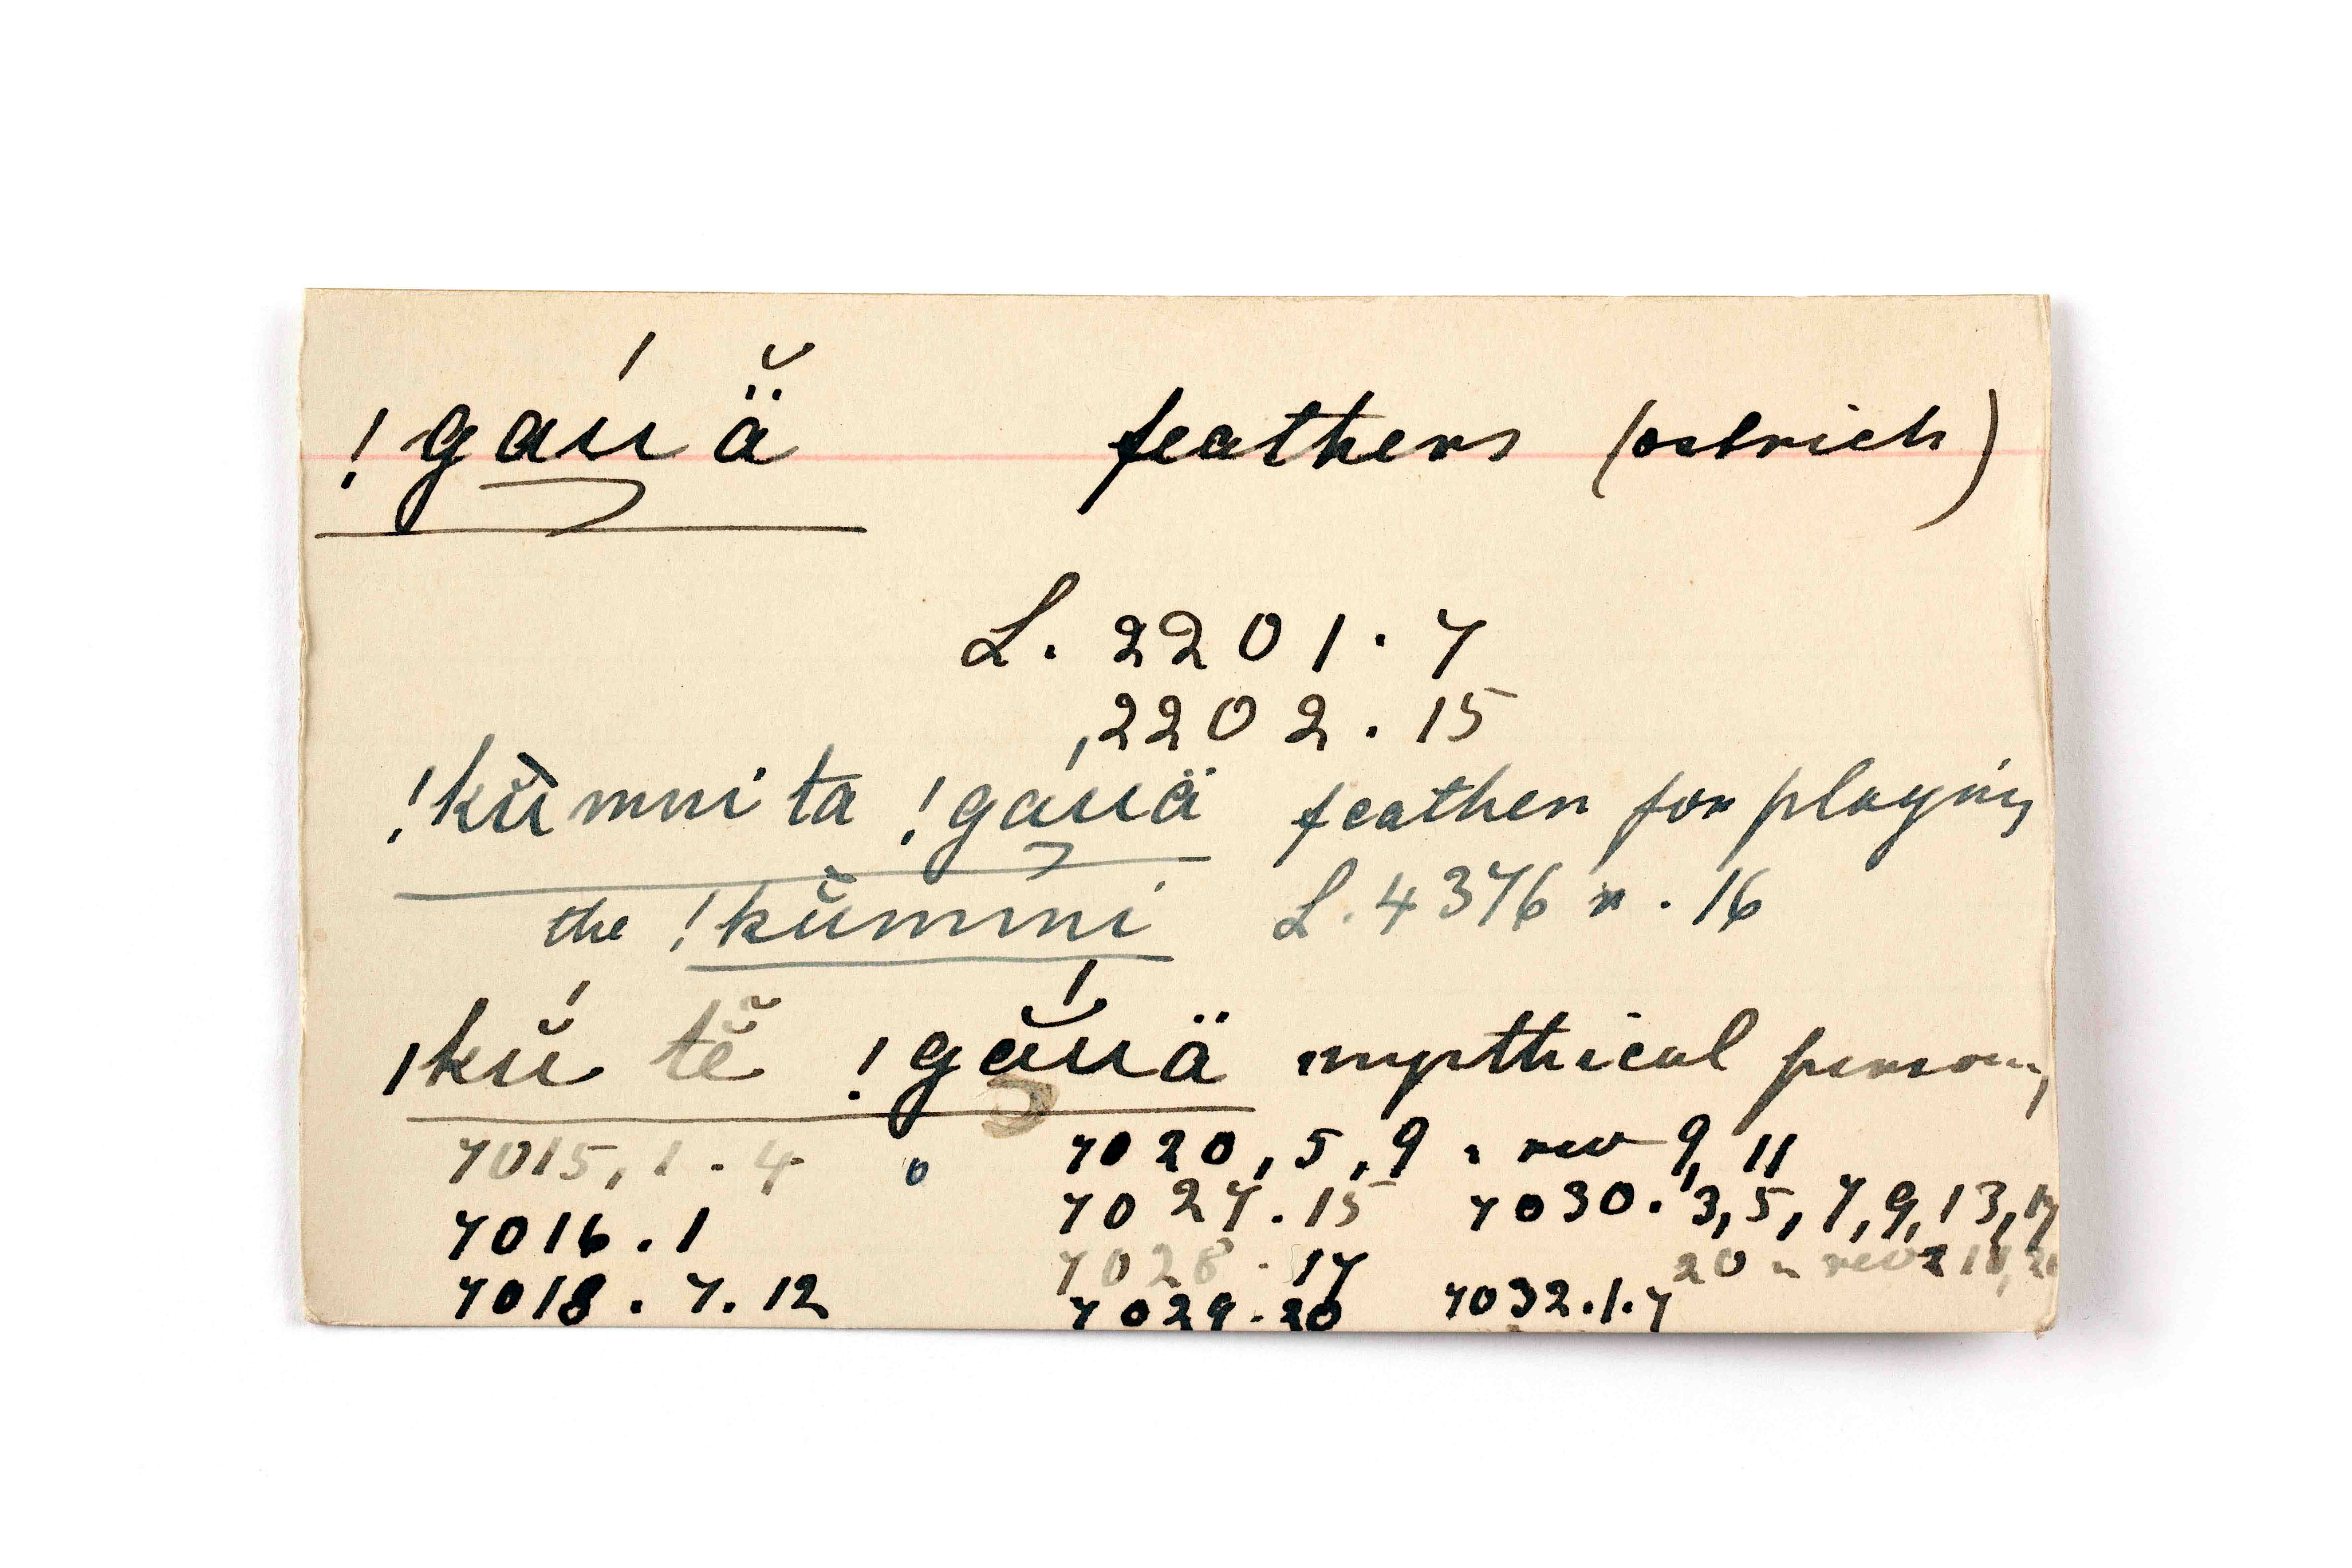 !gaúä̆ feathers (ostrich)
L. 2201.7
,2202.15
!kŭmmi ta !gaúä feather for playing
the !kŭmmi L. 4376 r. 16
|kŭ́ tĕ̃ !gắuä mythical person,
7015, 1.4 0 7020, 5, 9, rev 9, 11
7016.1 7027.15 7030. 3, 5, 7, 9, 13, 17
7028.17 20 rev
7018.7.12 7029.20 7032.1.7